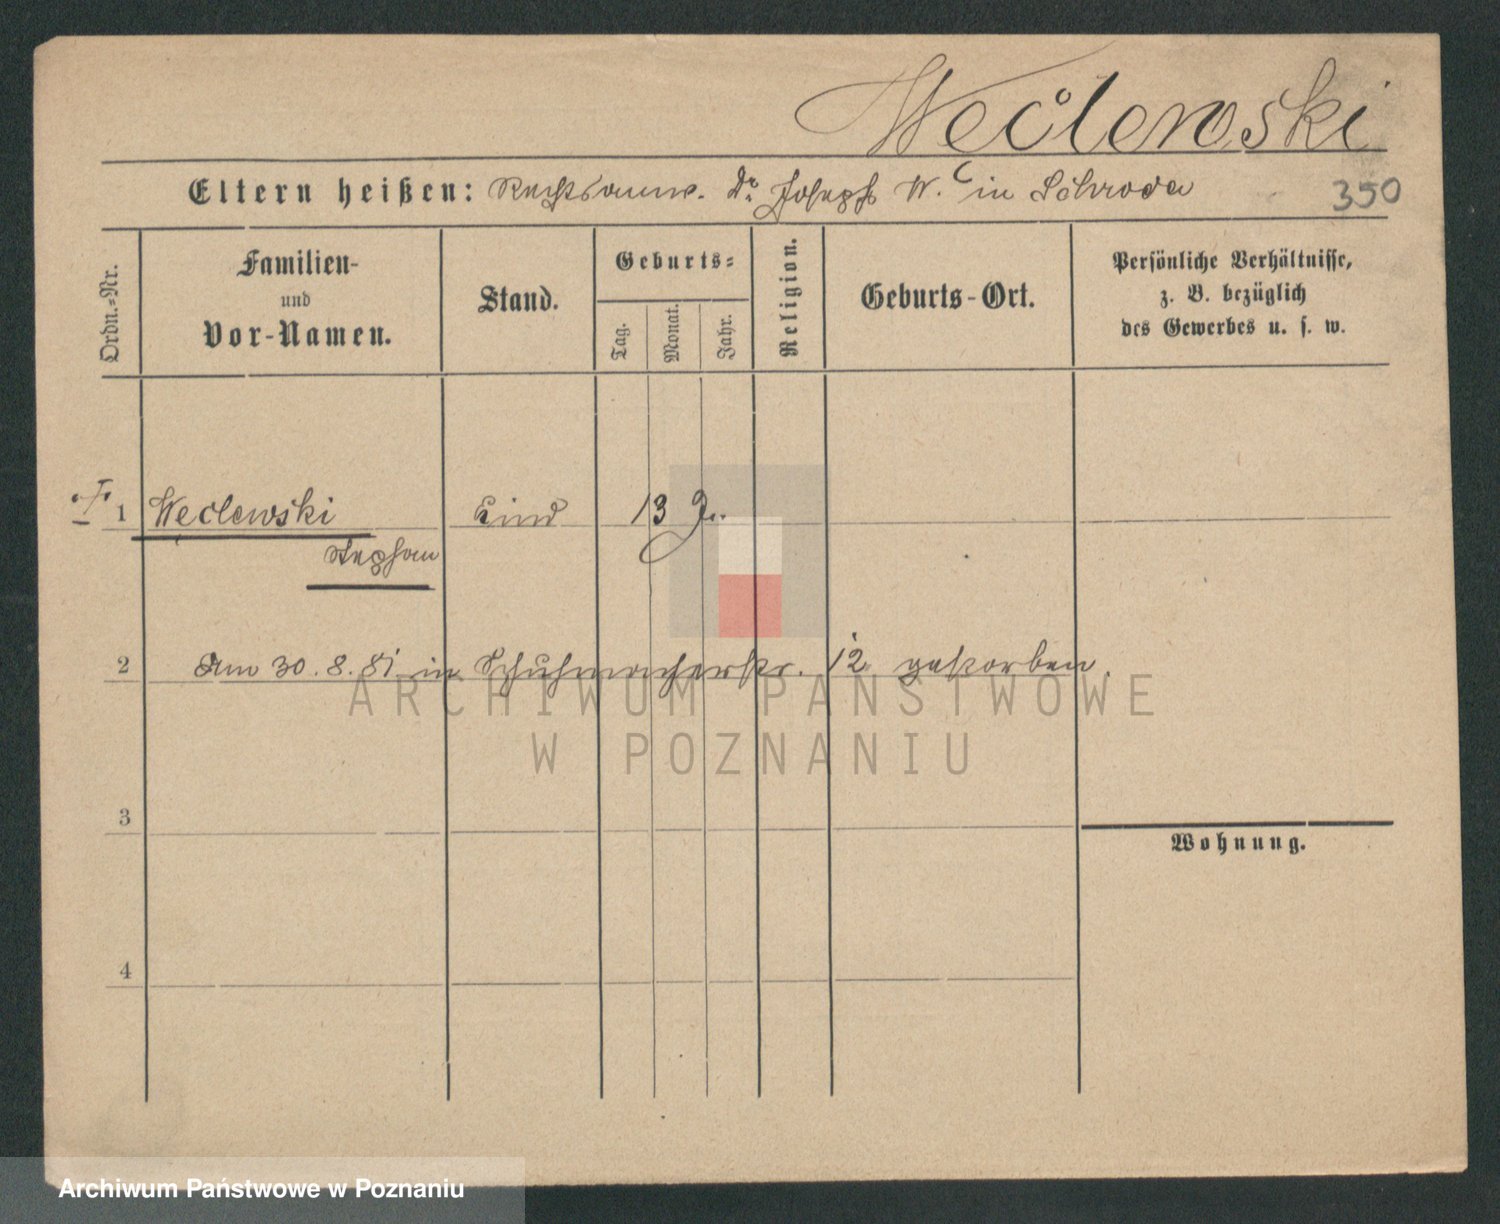 Weclewski
Eltern heißen: Rechtsanw. Dr. Joseph W. in Schroda
350
Ordn.-Nr.
Familien-
und
Vor-Namen.
Stand.
Geburts-
Tag.
Monat.
Jahr.
Religion.
Geburts-Ort.
Persönliche Verhältnisse,
z. B. bezüglich
des Gewerbes u. s. w.
1 Weclewski Kind 13 J.
Stephan
2 Am 30.8.81 in Schuhmacherstr. 12 gestorben.
3
Wohnung.
4
ARCHIWUM PAŃSTWOWE
W POZNANIU
Archiwum Państwowe w Poznaniu